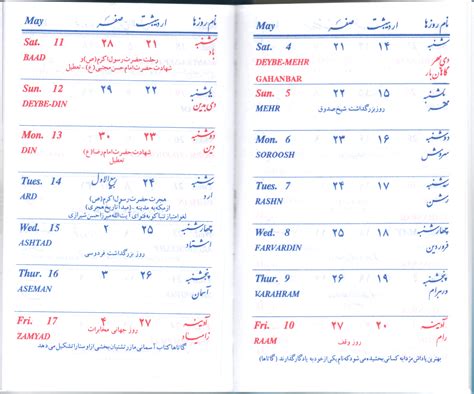 نام روزها اردیبهشت صفر May
شنبه ۱۴ ۲۱ Sat. 4
دی بمهر DEYBE-MEHR
گاهان بار GAHANBAR
یکشنبه ۱۵ ۲۲ Sun. 5
مهر روز بزرگداشت شیخ صدوق MEHR
دوشنبه ۱۶ ۲۳ Mon. 6
سروش SOROOSH
سه شنبه ۱۷ ۲۴ Tues. 7
رشن RASHN
چهارشنبه ۱۸ ۲۵ Wed. 8
فروردین FARVARDIN
پنجشنبه ۱۹ ۲۶ Thur. 9
ورهرام KARAHRAM
آدینه ۲۰ ۲۷ Fri. 10
رام روز وقف RAAM
بهترین پاداش مزدا به کسانی بخشیده می‌شود که نام یکی از خود به یادگار گذارند (گاتاها)
نام روزها اردیبهشت صفر May
شنبه ۲۱ ۲۸ Sat. 11
باد رحلت حضرت رسول اکرم (ص) و BAAD
شهادت حضرت امام حسن مجتبی (ع) - تعطیل
یکشنبه ۲۲ ۲۹ Sun. 12
دی بدین DEYBE-DIN
دوشنبه ۲۳ ۳۰ Mon. 13
دین شهادت حضرت امام رضا (ع) DIN
تعطیل
سه شنبه ۲۴ ربیع الاول Tues. 14
ارد هجرت حضرت رسول اکرم (ص) ARD
از مکه به مدینه - (مبدأ تاریخ هجری)
لغو امتیاز تنباکو به فتوای آیت‌الله میرزا حسن شیرازی
چهارشنبه ۲۵ ۲ Wed. 15
اشتاد روز بزرگداشت فردوسی ASHTAD
پنجشنبه ۲۶ ۳ Thur. 16
آسمان ASEMAN
آدینه ۲۷ ۴ Fri. 17
زامیاد روز جهانی مخابرات ZAMYAD
گاتاها کتاب آسمانی ما زرتشتیان بخشی از اوستا را تشکیل می دهد